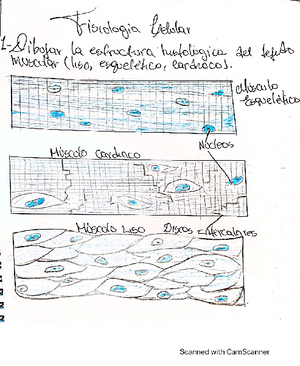 Fisiologia Celular
1-Dibujar la estructura histologica del tejido
muscular (liso, esqueletico, cardiaco).
Músculo
Esquelético
Núcleos
Músculo Cardiaco
Músculo Liso
Discos intercalares
Scanned with CamScanner